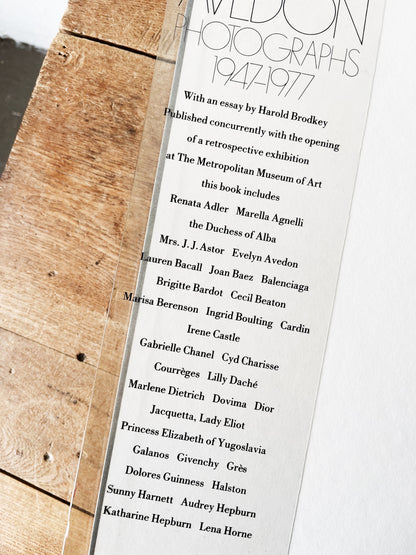 AVEDON
PHOTOGRAPHS
1947-1977
With an essay by Harold Brodkey
Published concurrently with the opening
of a retrospective exhibition
at The Metropolitan Museum of Art
this book includes
Renata Adler Marella Agnelli
the Duchess of Alba
Mrs. J. J. Astor Evelyn Avedon
Lauren Bacall Joan Baez Balenciaga
Brigitte Bardot Cecil Beaton
Marisa Berenson Ingrid Boulting Cardin
Irene Castle
Gabrielle Chanel Cyd Charisse
Courrèges Lilly Daché
Marlene Dietrich Dovima Dior
Jacquetta, Lady Eliot
Princess Elizabeth of Yugoslavia
Galanos Givenchy Grès
Dolores Guinness Halston
Sunny Harnett Audrey Hepburn
Katharine Hepburn Lena Horne